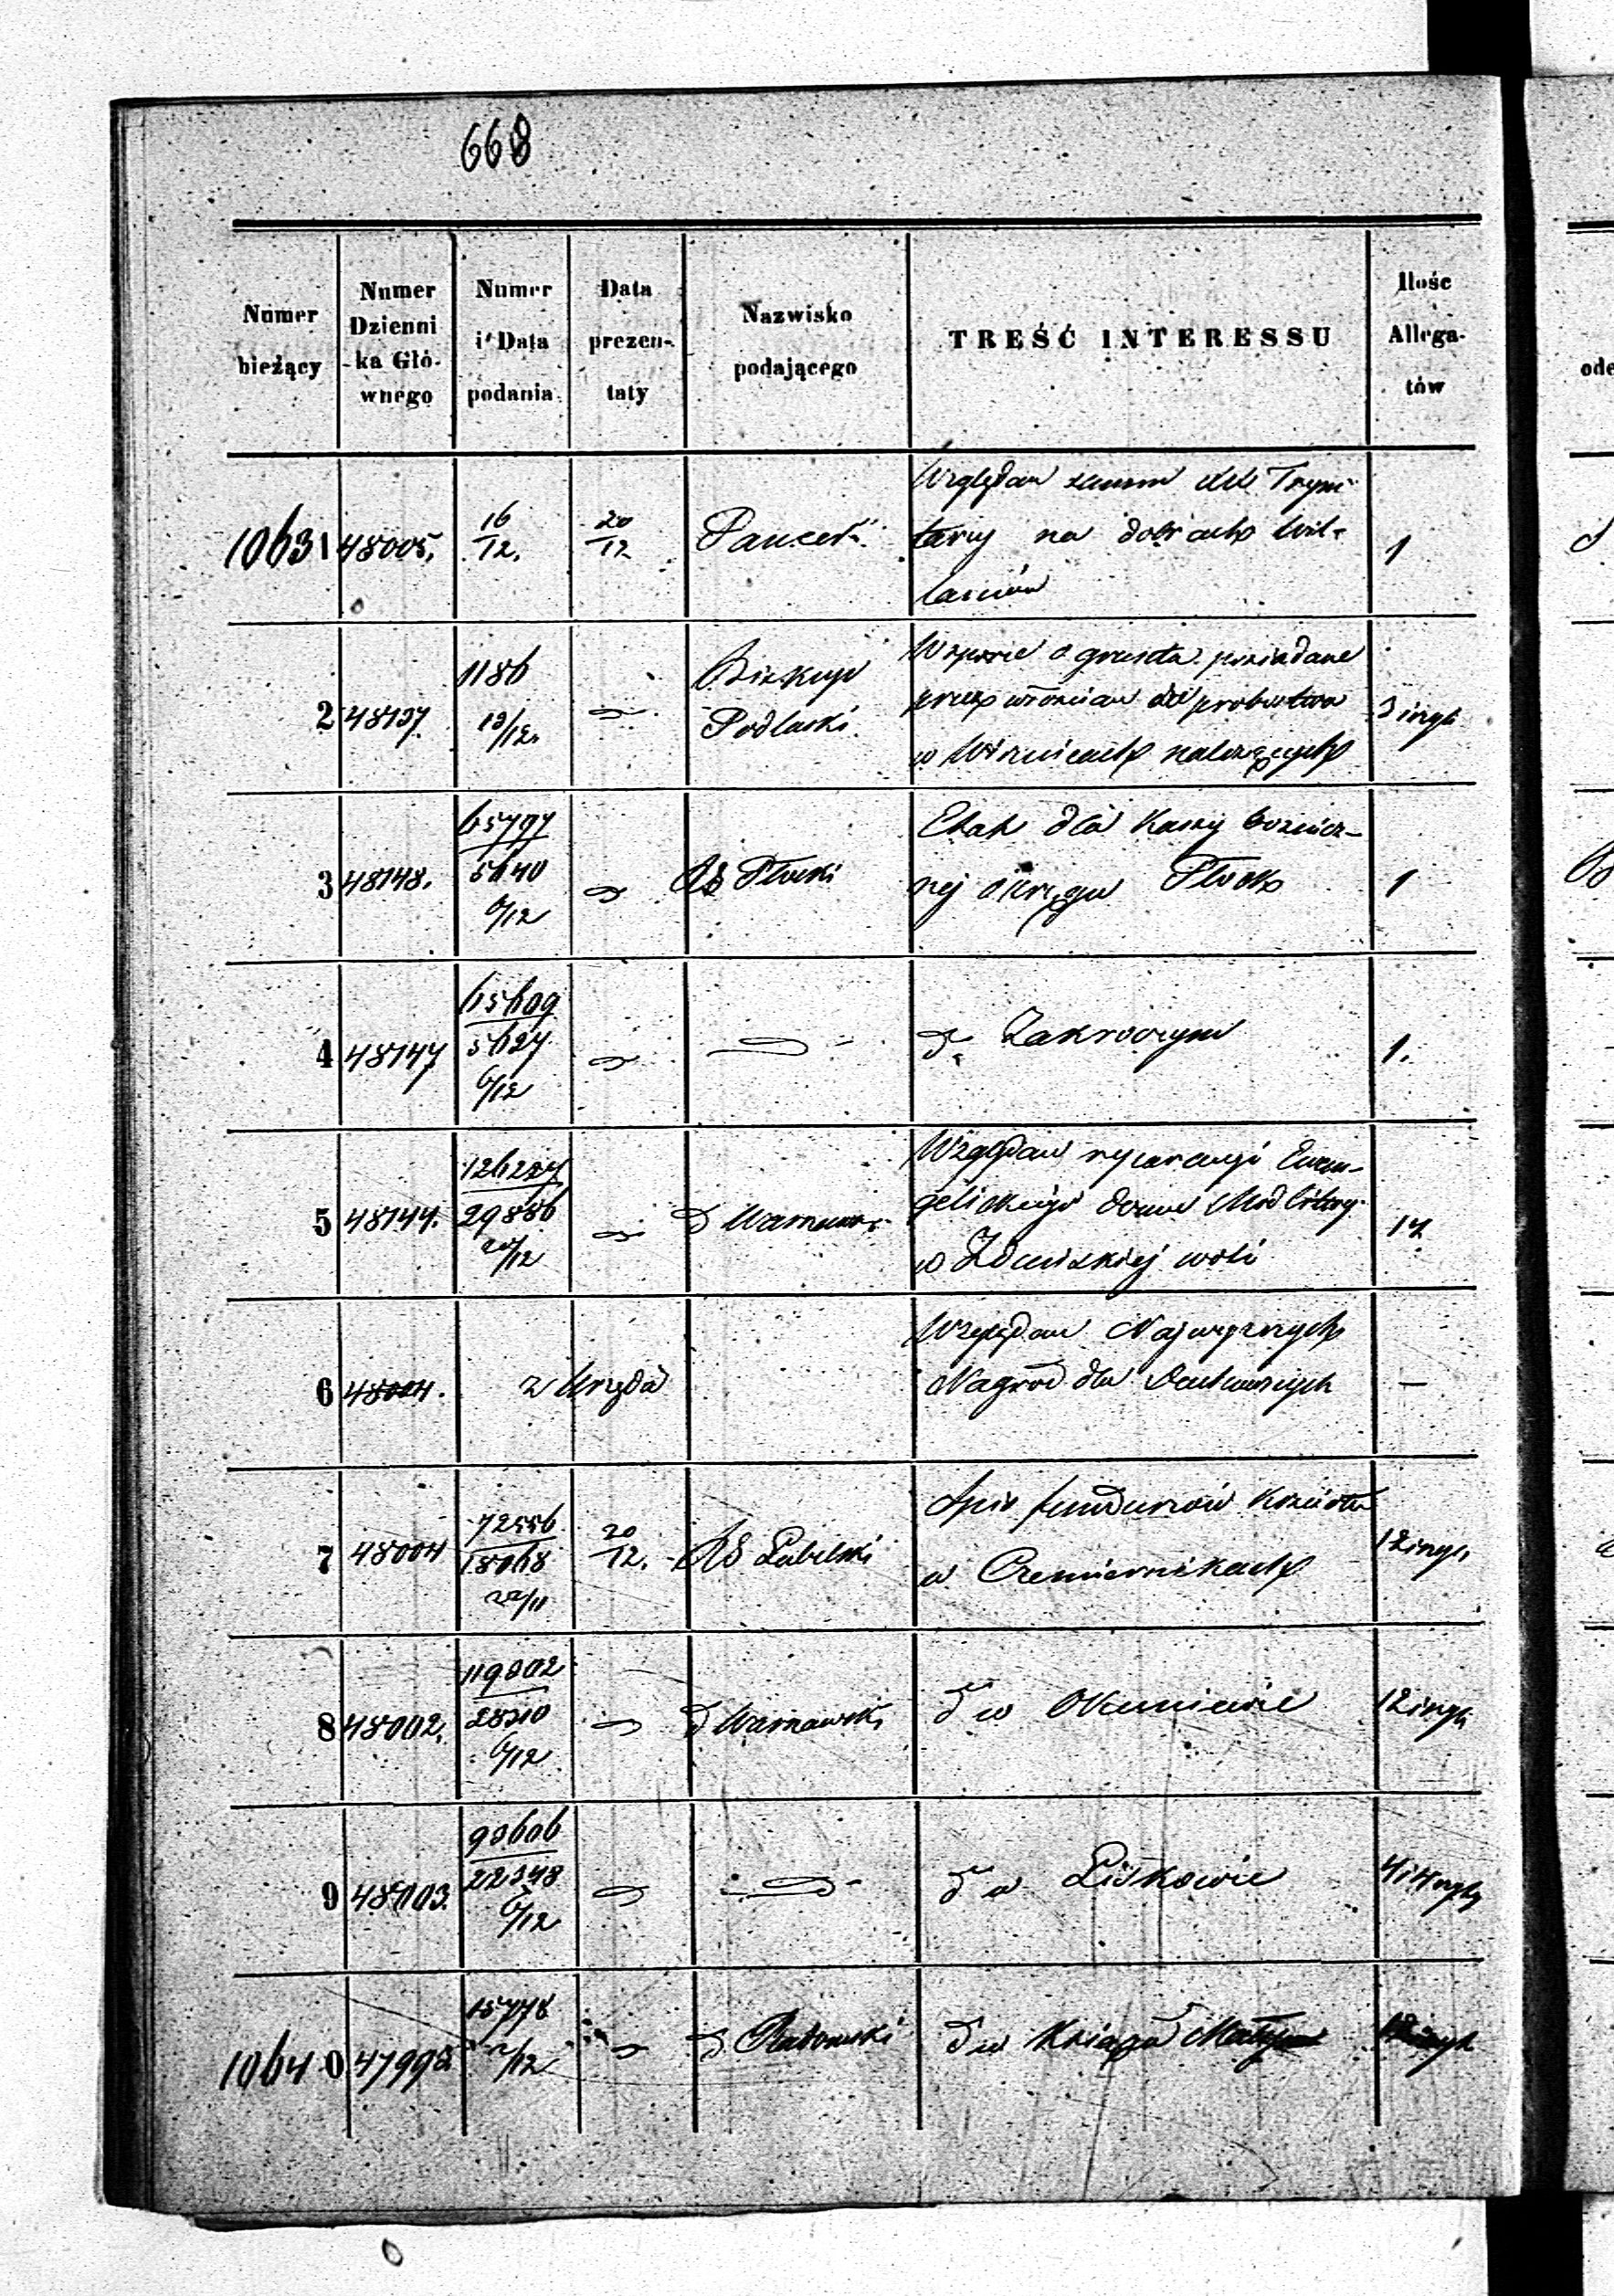 668
Numer bieżący
Numer Dzienni-ka Głó-wnego
Numer i Data podania
Data prezen-taty
Nazwisko podającego
TREŚĆ INTERESSU
Ilość Allega-tów
10631 48005. 16/12. 20/12 Pancer 1
Względem summ Tryni-
tarzy na dobrach Wil-
lanów
2 48137. 1186 13/12. Biskup Podlaski. 3 inych
W sporze o grunta posiadane
przez włościan do probostwa
w Wisznicach należących
3 48148. 65797/5640 6/12 RG Płocki 1
Etat dla Kassy bożnicz-
nej okręgu Płock
4 48147 65609/5627 6/12 1.
do Zakroczym
5 48144. 29886 20/12 d Warszaws. 14
Względem reparacyi Ewan-
gelickiego domu Modlitwy
w Zduńskiej woli
6 48004. z Urzędu —
Względem Najwyższych
Nagród dla Duchownych
7 48004 72556/18068 22/11 20/12. RG Lubelski 12 inych
Spis funduszów Kościoła
w Czemiernikach
8 48002. 119802/28310 6/12 d Warszawski 12 inych
d w Okuniewie
9 48003. 93606/22348 6/12
d w Liskowie
10640 47998 15778 2/12 d Radomski
d w Książu Małym
ode